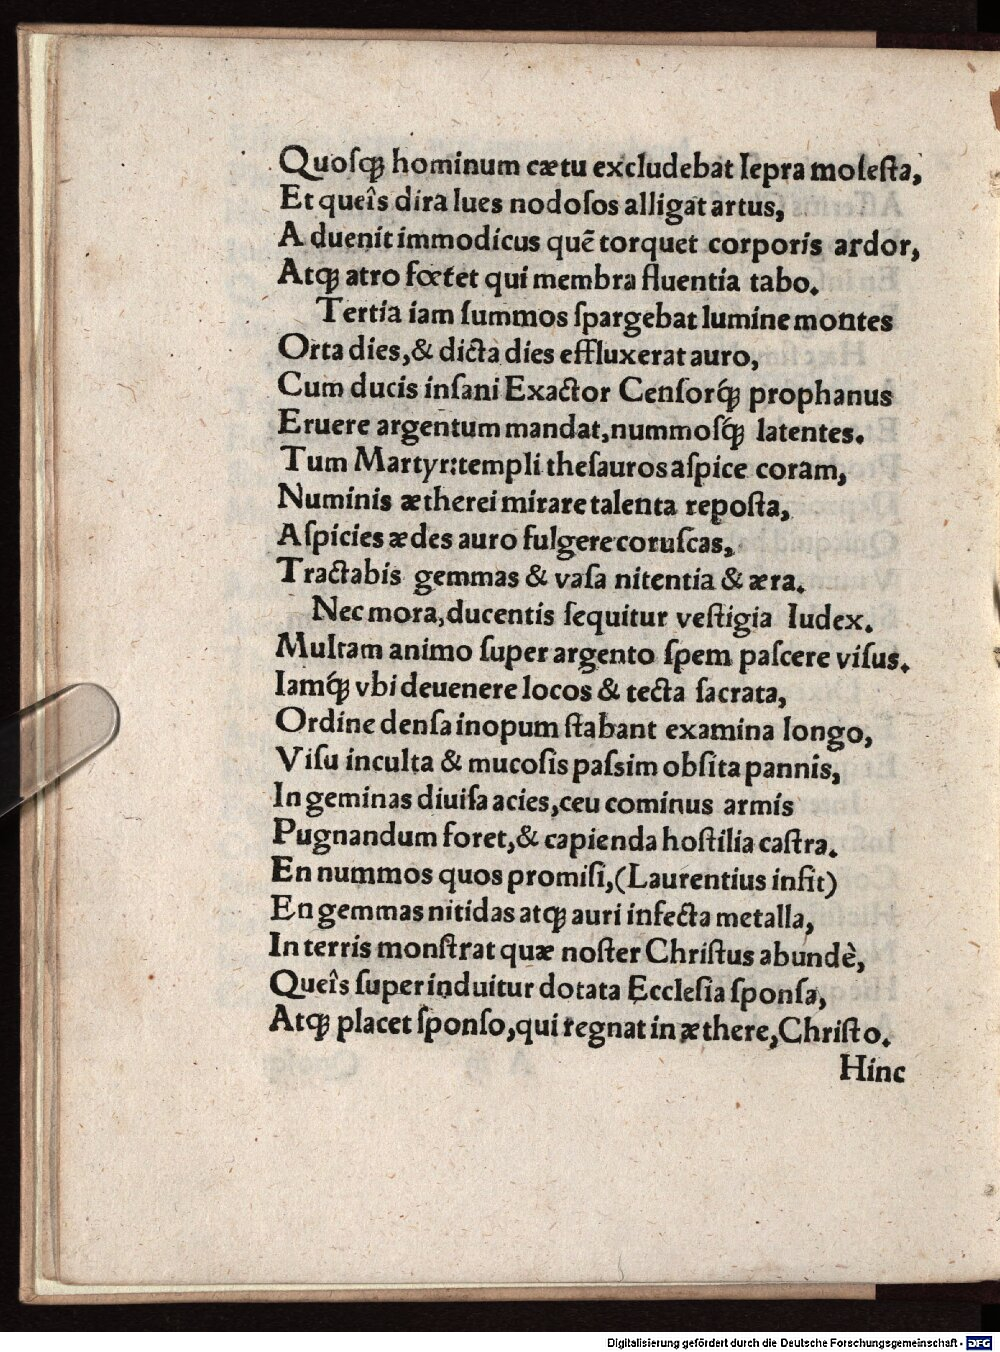 Quoſqꝫ hominum cætu excludebat lepra moleſta,
Et queîs dira lues nodoſos alligat artus,
Aduenit immodicus quē torquet corporis ardor,
Atqꝫ atro fœtet qui membra fluentia tabo.
Tertia iam ſummos ſpargebat lumine montes
Orta dies, & dicta dies effluxerat auro,
Cum ducis inſani Exactor Cenſorq́ꝫ prophanus
Eruere argentum mandat, nummoſq́ꝫ latentes.
Tum Martyr: templi theſauros aſpice coram,
Numinis ætherei mirare talenta repoſta,
Aſpicies ædes auro fulgere coruſcas,
Tractabis gemmas & vaſa nitentia & æra.
Nec mora, ducentis ſequitur veſtigia Iudex.
Multam animo ſuper argento ſpem paſcere viſus.
Iamq́ꝫ vbi deuenere locos & tecta ſacrata,
Ordine denſa inopum ſtabant examina longo,
Viſu inculta & mucoſis paſsim obſita pannis,
In geminas diuiſa acies, ceu cominus armis
Pugnandum foret, & capienda hoſtilia caſtra.
En nummos quos promiſi, (Laurentius inſit)
En gemmas nitidas atqꝫ auri infecta metalla,
In terris monſtrat quæ noſter Chriſtus abundè,
Queîs ſuperinduitur dotata Eccleſia ſponſa,
Atqꝫ placet ſponſo, qui regnat in æthere, Chriſto.
Hinc
Digitalisierung gefördert durch die Deutsche Forschungsgemeinschaft - DFG